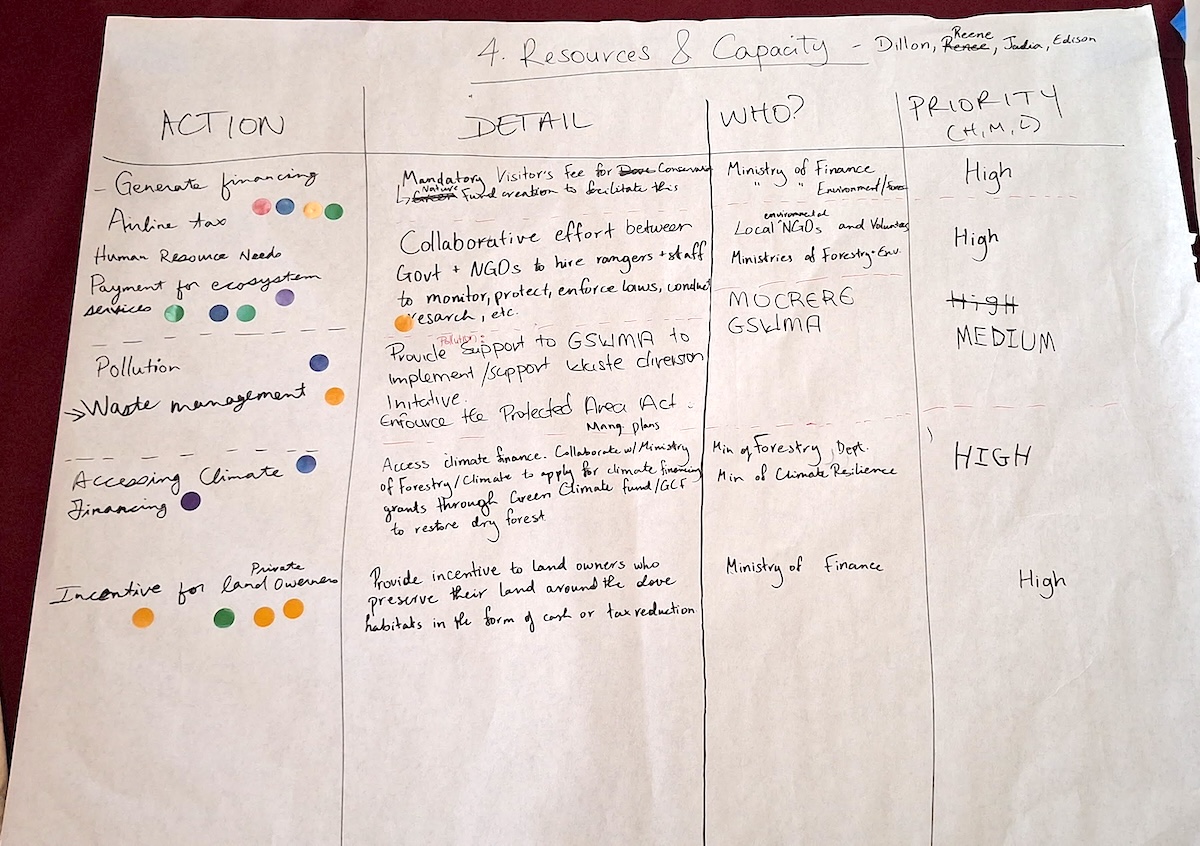 4. Resources & Capacity - Dillon, Renee, Reene, Jadia, Edison
ACTION
DETAIL
WHO?
PRIORITY
(H, M, L)
- Generate financing
Airline tax
Mandatory Visitor's Fee for Dove Conservat
Green Nature Fund creation to facilitate this
Ministry of Finance
" " Environment/
High
Human Resource Needs
Payment for ecosystem
services
Collaborative effort between
Govt + NGOs to hire rangers + staff
to monitor, protect, enforce laws, conduct
resarch, etc.
Local environmental NGOs and
Ministries of Forestry + Env.
High
Pollution
→ Waste management
Pollution:
Provide Support to GSWMA to
implement/support Waste diversion
Initative.
Enfource the Protected Area Act.
Mang. plans
MOCRERE
GSWMA
High
MEDIUM
Accessing Climate
Financing
Access climate finance. Collaborate w/ Ministry
of Forestry/Climate to apply for climate financing
grants through Green Climate fund/GCF
to restore dry forest
Min of Forestry, Dept.
Min of Climate Resilience
HIGH
Incentive for Private land owerners
Provide incentive to land owners who
preserve their land around the dove
habitats in the form of cash or tax reduction
Ministry of Finance
High